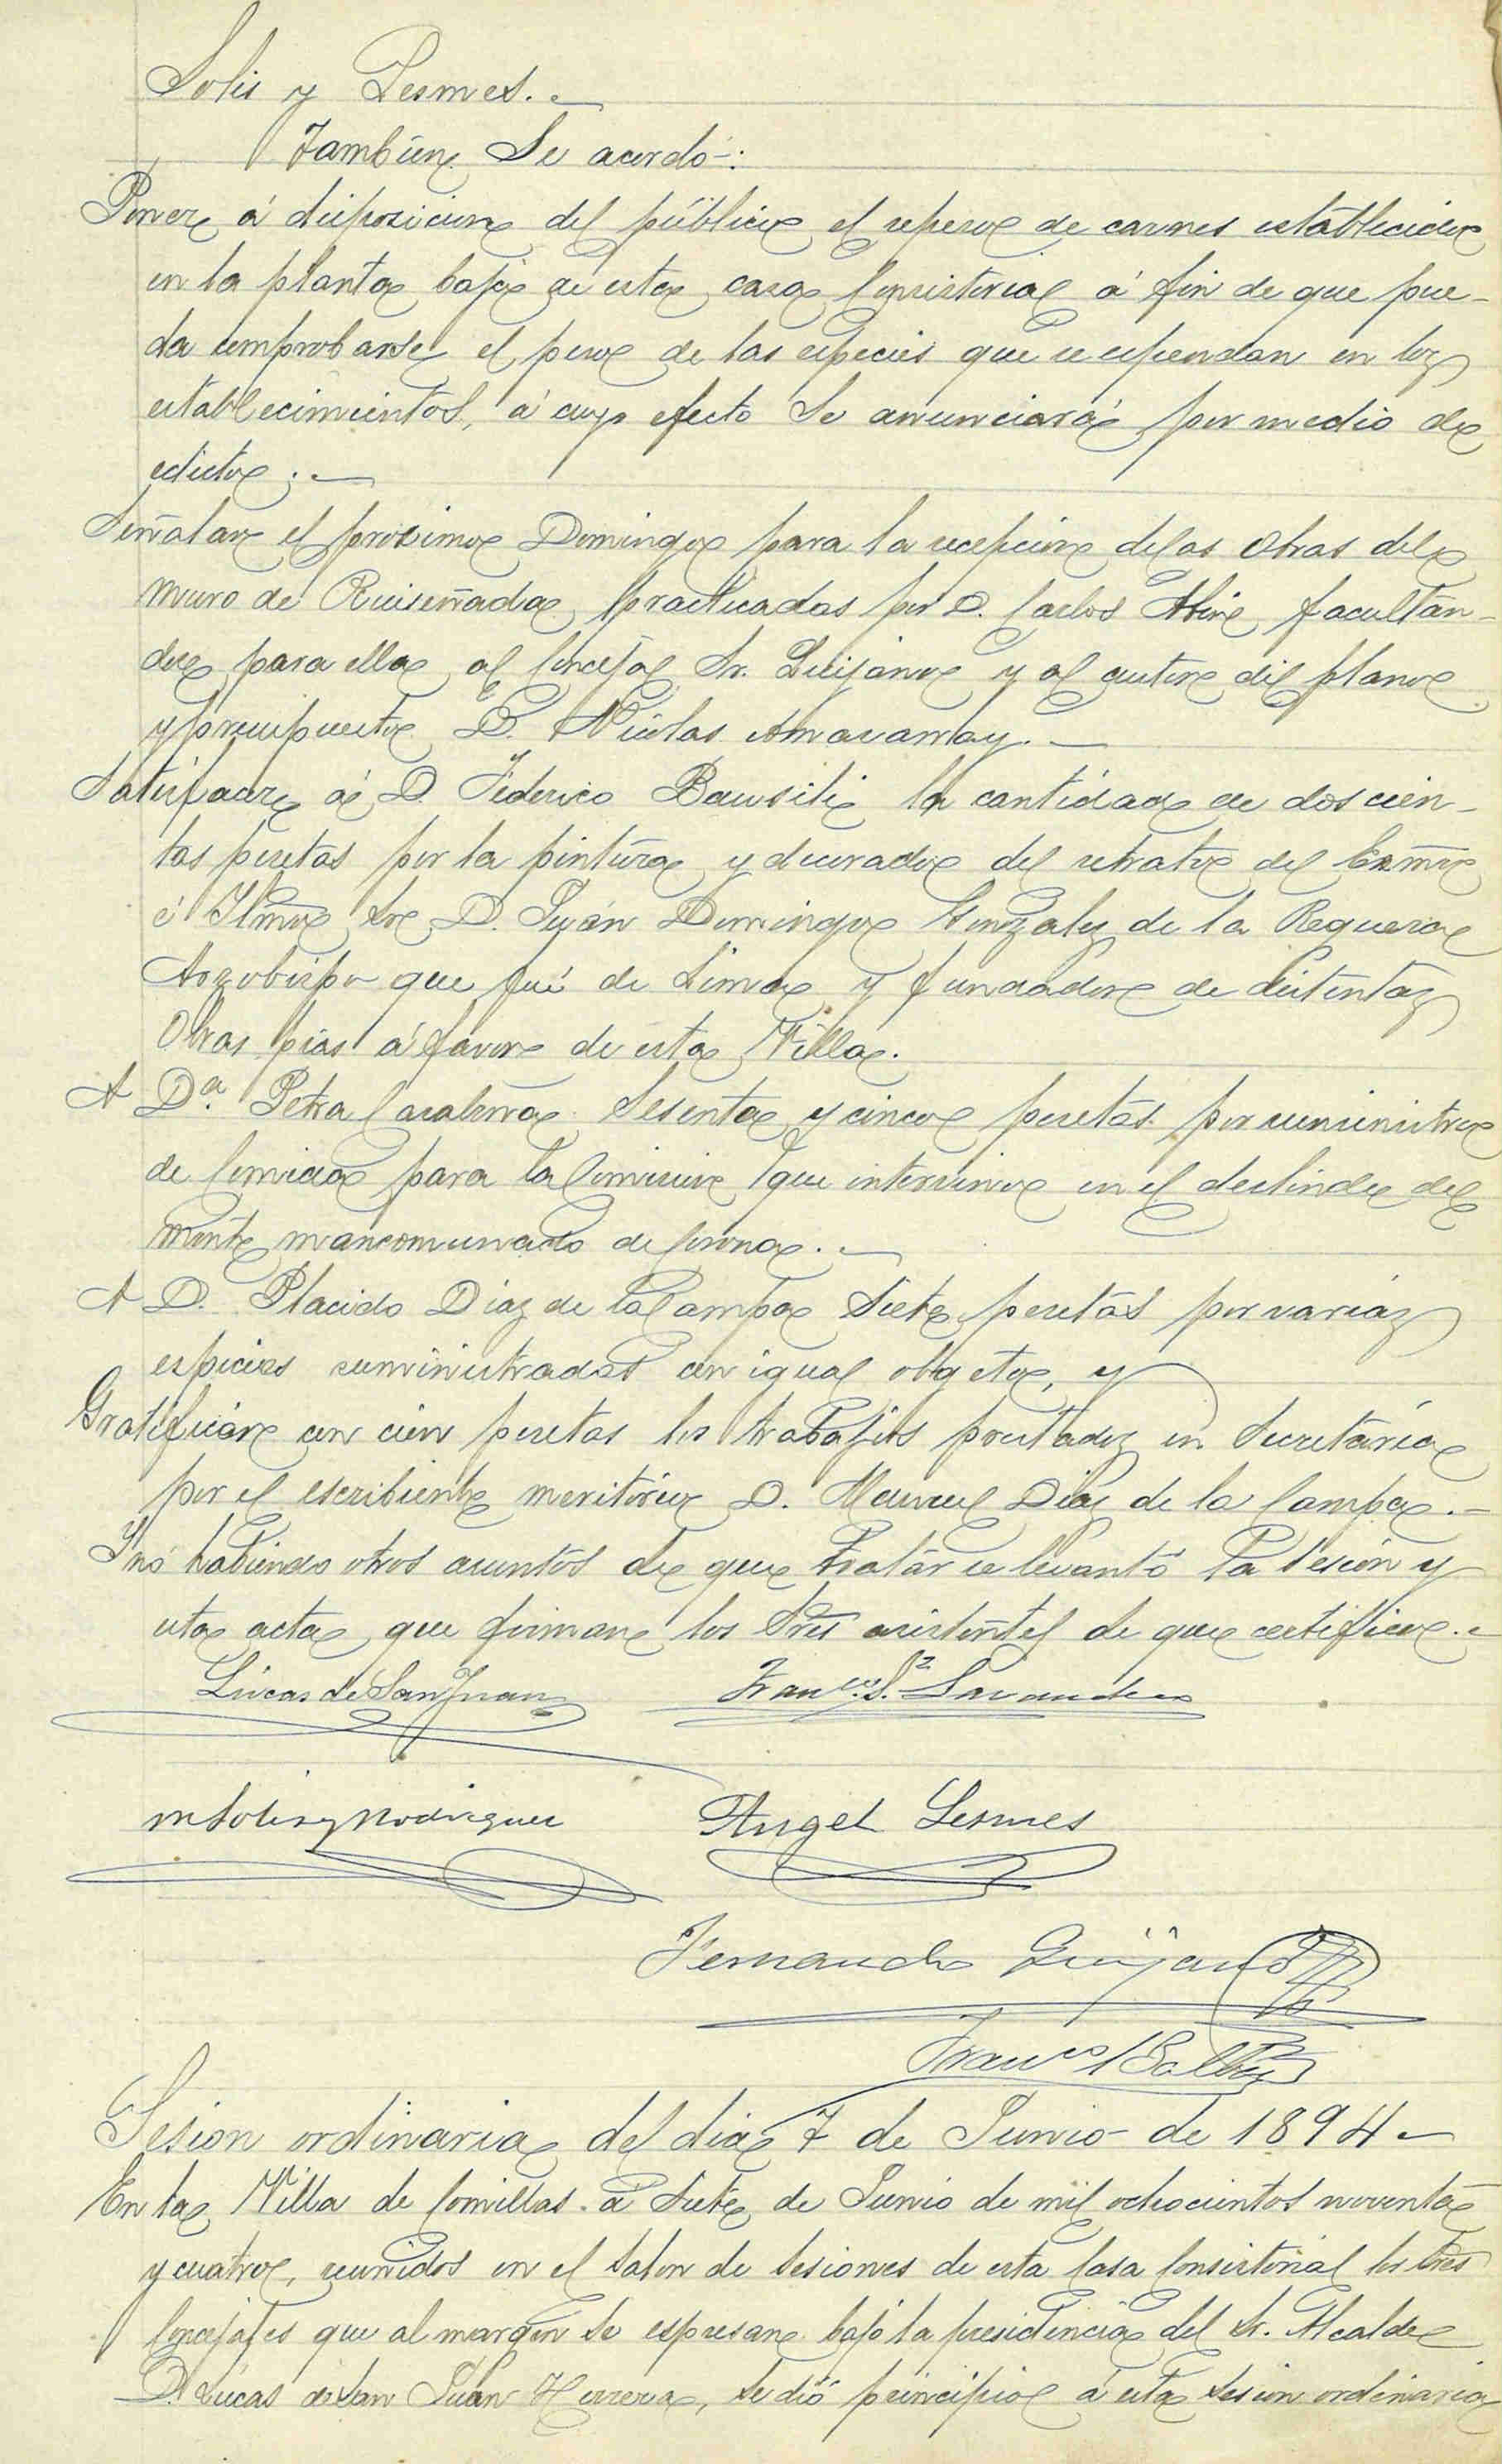 Solis y Lesmes.
Tambien Se acordó:
Poner á disposicion del público el repeso de carnes establecido
en la planta baja de esta casa Consistorial á fin de que pue-
da comprobarse el peso de las especies que se espendan en los
establecimientos, á cuyo efecto Se anunciará por medio de
edicto.
Señalar el proximo Domingo para la recepcion de las Obras del
muro de Ruiseñada practicadas por D. Carlos facultan-
do para ello al Concejal Sr. Quijano y al autor del plano
y presupuesto D. Nicolas
Satisfacer á D. Federico la cantidad de doscien-
tas pesetas por la pintura y decorado del retrato del Excmo
é Iltmo Sr D. Juan Domingo Gonzalez de la Reguera
Arzobispo que fué de Lima y fundador de distintas
Obras pias á favor de esta Villa.
A Dª. Petra Sesenta y cinco pesetas por suministro
de Comida para la Comision que intervino en el deslinde del
Monte mancomunado de Corona.
A D. Placido Diaz de la Campa Siete pesetas por varias
especies suministradas con igual obgeto, y
Gratificar con cien pesetas los trabajos prestados en Secretaría
por el escribiente meritorio D. Manuel Diaz de la Campa.
Y no habiendo otros asuntos de que tratar se levantó la Sesion y
esta acta que firman los Sres asistentes de que certifico.
Lúcas de San Juan Franco. S.z
M Solis y Rodriguez Angel Lesmes
Fernando Quijano
Franco
Sesion ordinaria del dia 7 de Junio de 1894
En la Villa de Comillas á Siete de Junio de mil ochocientos noventa
y cuatro, reunidos en el Salon de Sesiones de esta Casa Consistorial los Sres
Concejales que al margen Se espresan bajo la presidencia del Sr. Alcalde
D. Lúcas de San Juan Herrera, Se dió principio á esta Sesion ordinaria